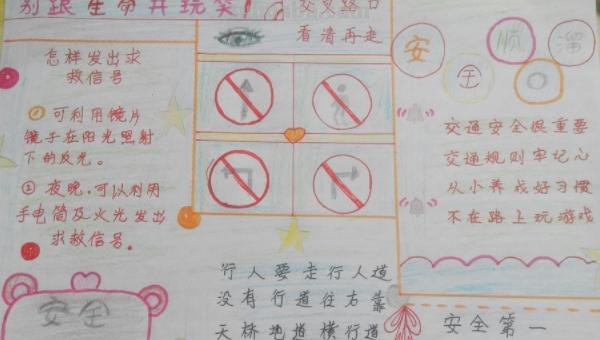 别跟生命开玩笑！
交叉路口
看清再走
怎样发出求
救信号
①可利用镜片
镜子在阳光照射
下的反光。
②夜晚，可以利用
手电筒及火光发出
求救信号。
安全
行人要走行人道
没有行道往右靠
天桥地道横行道
安全
顺
溜
交通安全很重要
交通规则牢记心
从小养成好习惯
不在路上玩游戏
安全第一